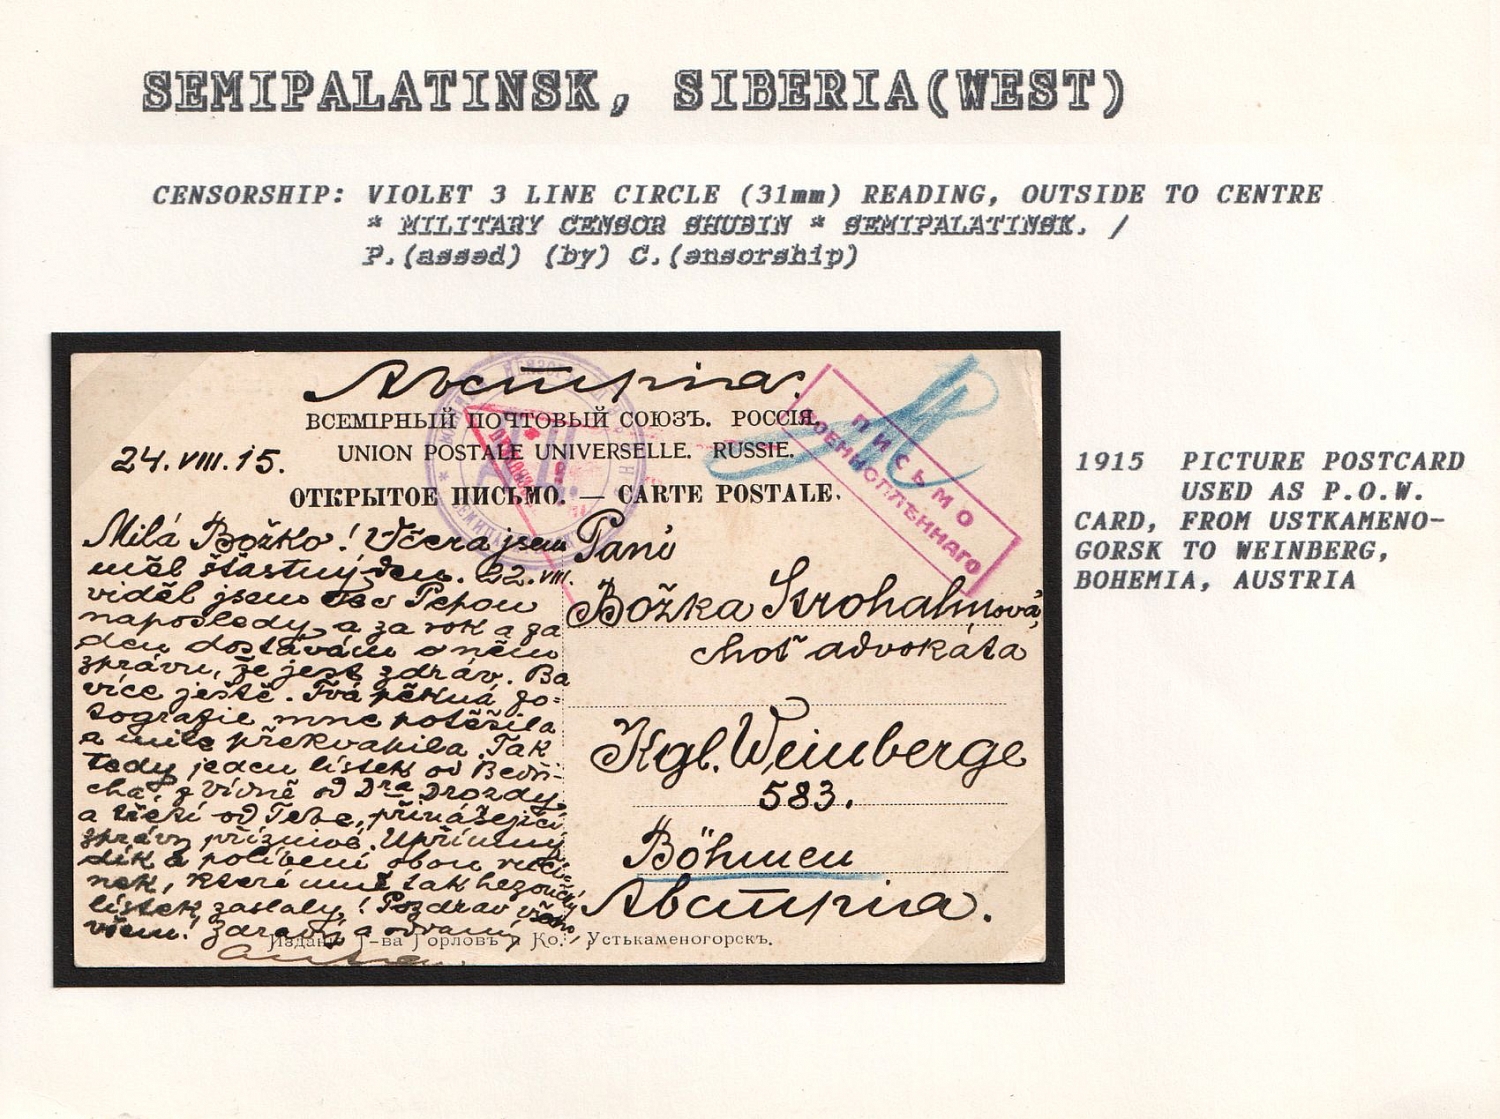 SEMIPALATINSK, SIBERIA(WEST)
CENSORSHIP: VIOLET 3 LINE CIRCLE (31mm) READING, OUTSIDE TO CENTRE
* MILITARY CENSOR SHUBIN * SEMIPALATINSK. /
P.(assed) (by) C.(ensorship)
Австрія.
ВСЕМІРНЫЙ ПОЧТОВЫЙ СОЮЗЪ. РОССІЯ.
24.VIII.15.
UNION POSTALE UNIVERSELLE. RUSSIE.
ОТКРЫТОЕ ПИСЬМО. — CARTE POSTALE.
ПИСЬМО
ВОЕННОПЛѢННАГО
Milá Božko! Včera jsem
měl šťastný den. 22.VIII.
viděl jsem se s Pepou
naposledy a za rok a za
den dostávám o něm
zprávu, že jest zdráv. Ba
více ještě. Tvá pěkná fo=
tografie mne potěšila
a mile překvapila. Tak
tedy jeden lístek od Bedři-
cha, z Vídně od Dra Drozdy,
a třetí od Tebe, přinášející
zprávy příznivé. Upřímný
dík a políbení obou ruči-
nek, které mně tak hezoučký
lístek zaslaly! Pozdrav
všem! zdravý a oddaný
Paní
Božka Strohalmová,
choť advokáta
Kgl. Weinberge
583.
Böhmen
Австрія.
Изданіе Т-ва Горловъ и Ко. Устькаменогорскъ.
1915 PICTURE POSTCARD
USED AS P.O.W.
CARD, FROM USTKAMENO-
GORSK TO WEINBERG,
BOHEMIA, AUSTRIA